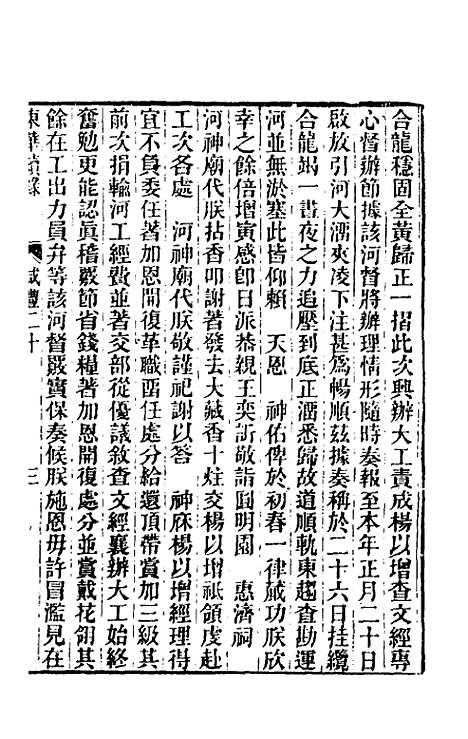 合龍穩固全黃歸正一摺此次興辦大工責成楊以增查文經專
心督辦節據該河督將辦理情形隨時奏報至本年正月二十日
啟放引河大溜爽凌下注甚爲暢順茲據奏稱於二十六日挂纜
合龍竭一晝夜之力追壓到底正溜悉歸故道順軌東趨查勘運
河並無淤塞此皆仰賴 天恩 神佑俾於初春一律蕆功朕欣
幸之餘倍增寅感卽日派恭親王奕訢敬詣圓明園 惠濟祠
河神廟代朕拈香叩謝著發去大藏香十炷交楊以增祗領虔赴
工次各處 河神廟代朕敬謹祀謝以答 神庥楊以增經理得
宜不負委任著加恩開復革職留任處分給還頂帶賞加三級其
前次捐輸河工經費並著交部從優議敘查文經襄辦大工始終
奮勉更能認眞稽覈節省錢糧著加恩開復處分並賞戴花翎其
餘在工出力員弁等該河督嚴實保奏候朕施恩毋許冒濫見在
東華續錄 咸豐二十 三